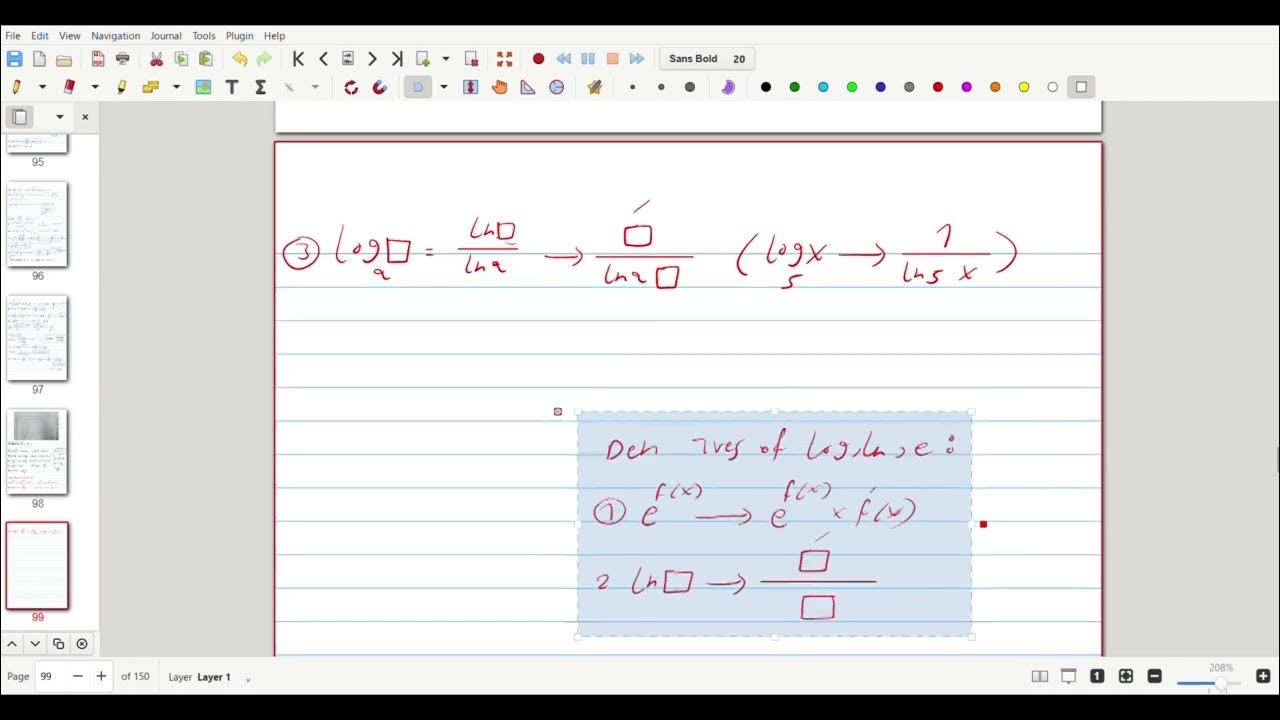 File Edit View Navigation Journal Tools Plugin Help
Sans Bold 20
95
96
97
98
99
③ log_a □ = ln□/lna → □́/lna □ (log_5 x → 1/ln5 x)
of log, ln, e:
① e^f(x) → e^f(x) × f́(x)
2 ln□ → □́/□
Page 99 of 150 Layer Layer 1
208%